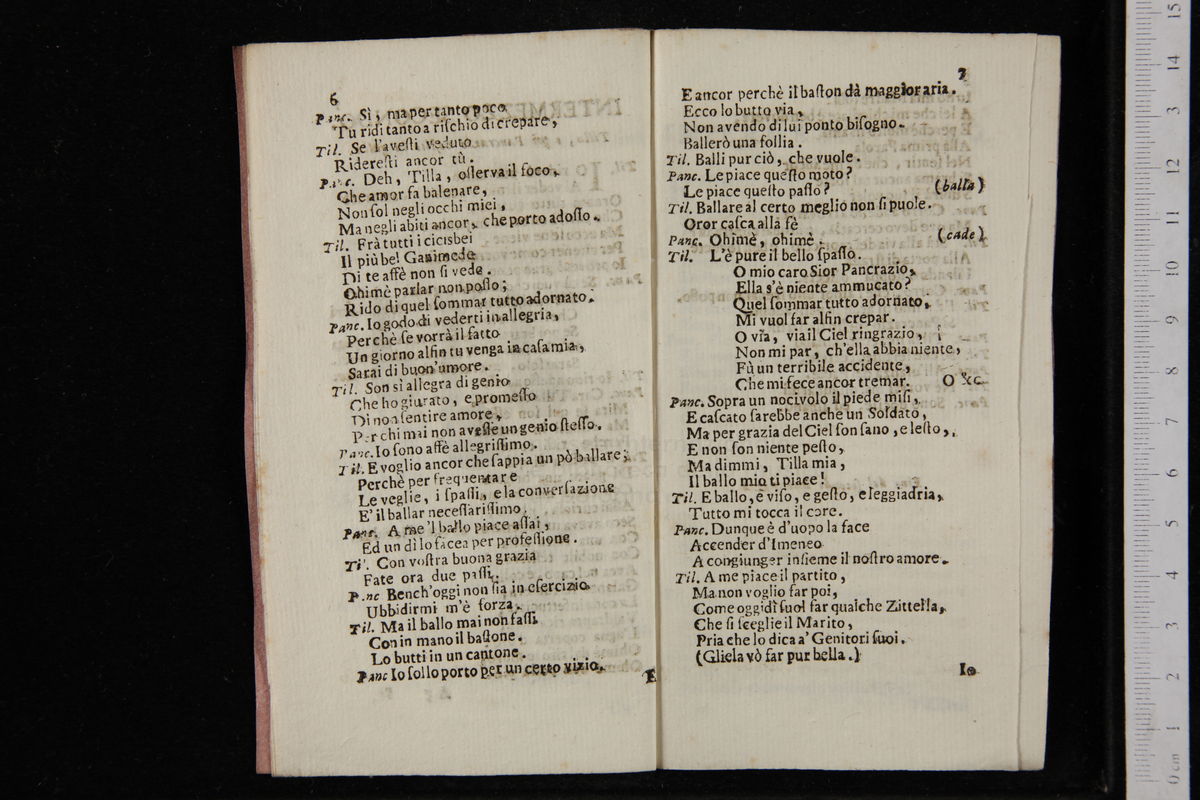 6
Panc. Sì, ma per tanto poco
Tu ridi tanto a riſchio di crepare,
Til. Se l'aveſti veduto
Ridereſti ancor tù.
Panc. Deh, Tilla, oſſerva il foco,
Che amor fa balenare,
Non ſol negli occhi miei,
Ma negli abiti ancor, che porto adoſſo.
Til. Frà tutti i ciciſbei
Il più bel Ganimede
Di te affè non ſi vede.
Ohimè parlar non poſſo;
Rido di quel ſommar tutto adornato.
Panc. Io godo di vederti in allegria,
Perchè ſe vorrà il fatto
Un giorno alfin tu venga in caſa mia,
Sarai di buon'umore.
Til. Son sì allegra di genio
Che ho giurato, e promeſſo
Di non ſentire amore,
Per chi mai non aveſſe un genio ſteſſo.
Panc. Io ſono affè allegriſſimo.
Til. E voglio ancor che ſappia un pò ballare;
Perchè per frequentare
Le veglie, i ſpaſſi, e la converſazione
E' il ballar neceſſariſſimo.
Panc. A me 'l ballo piace aſſai,
Ed un dì lo facea per profeſſione.
Til. Con voſtra buona grazia
Fate ora due paſſi.
Panc Bench'oggi non ſia in eſercizio
Ubbidirmi m'è forza.
Til. Ma il ballo mai non faſſi
Con in mano il baſtone.
Lo butti in un cantone.
Panc Io ſol lo porto per un certo vizio,
E
7
E ancor perchè il baſton dà maggior aria.
Ecco lo butto via,
Non avendo di lui ponto biſogno.
Ballerò una follia.
Til. Balli pur ciò, che vuole.
Panc. Le piace queſto moto?
Le piace queſto paſſo? (balla)
Til. Ballare al certo meglio non ſi puole.
Oror caſca alla fè
Panc. Ohimè, ohimè. (cade)
Til. L'è pure il bello ſpaſſo.
O mio caro Sior Pancrazio,
Ella s'è niente ammucato?
Quel ſommar tutto adornato,
Mi vuol far alfin crepar.
O via, via il Ciel ringrazio,
Non mi par, ch'ella abbia niente,
Fù un terribile accidente,
Che mi fece ancor tremar. O &c.
Panc. Sopra un nocivolo il piede miſi,
E caſcato ſarebbe anche un Soldato,
Ma per grazia del Ciel ſon ſano, e leſto,
E non ſon niente peſto,
Ma dimmi, Tilla mia,
Il ballo mio ti piace!
Til. E ballo, e viſo, e geſto, e leggiadria,
Tutto mi tocca il core.
Panc. Dunque è d'uopo la face
Accender d'Imeneo
A congiunger inſieme il noſtro amore.
Til. A me piace il partito,
Ma non voglio far poi,
Come oggidì ſuol far qualche Zittella,
Che ſi ſceglie il Marito,
Pria che lo dica a' Genitori ſuoi.
(Gliela vò far pur bella.)
Io